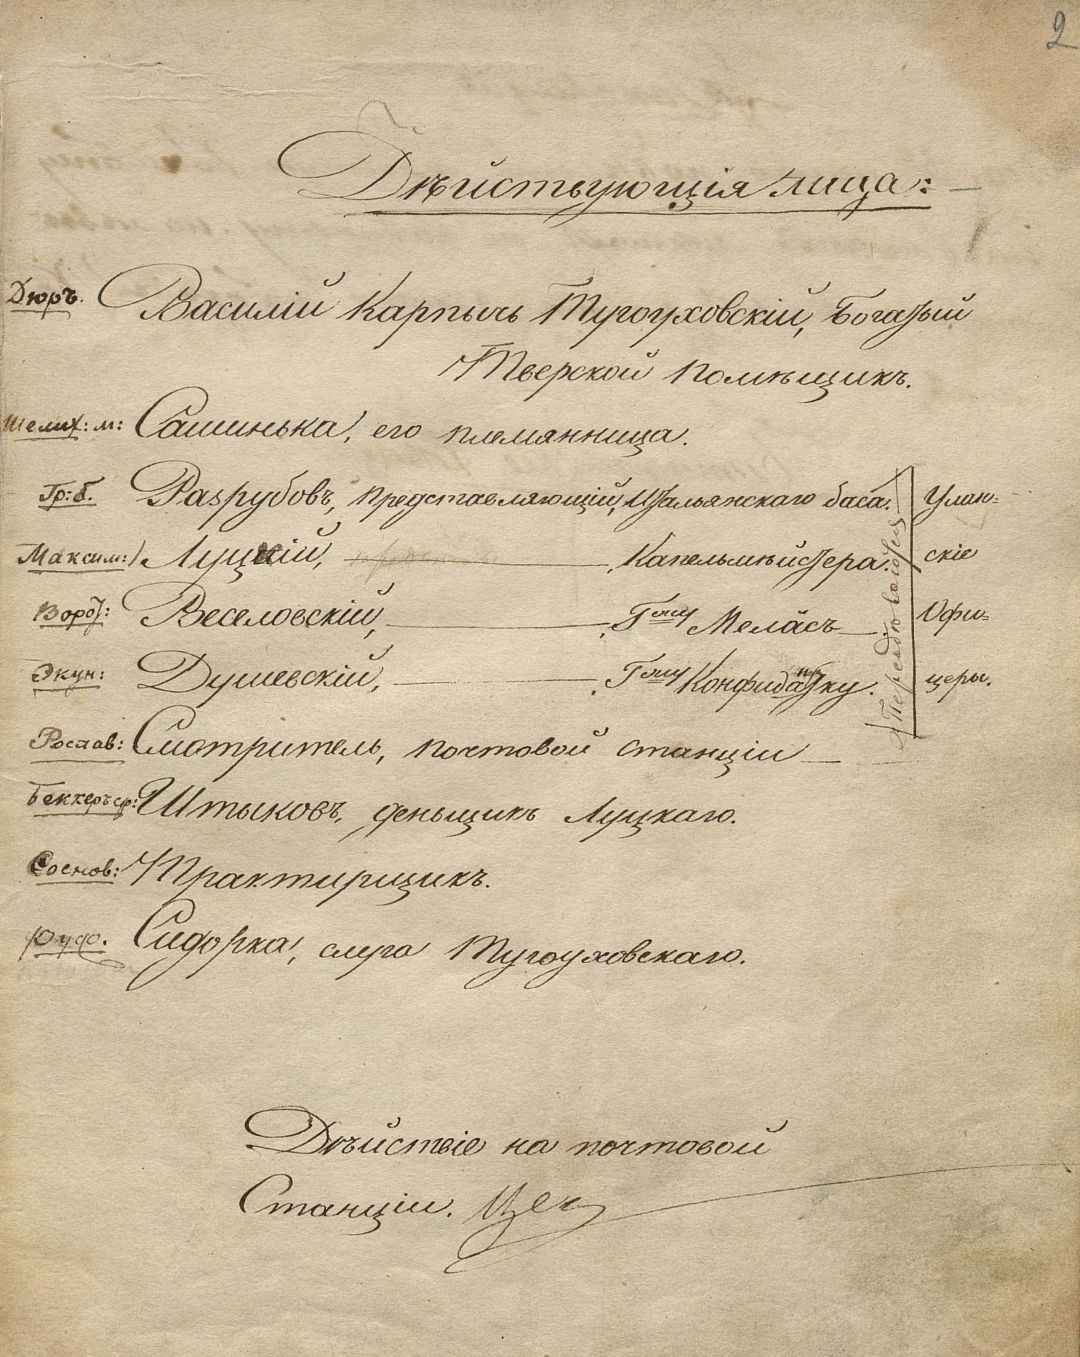 2
Дѣйствующія лица:
Дюръ. Василій Карпычь Тугоуховскій, Богатый
Тверской помѣщикъ.
Шелих: м: Сашинька, его племянница.
Гр: б. Разрубовъ, представляющій, Итальянскаго баса. Улан-
Максим: Луцкій, Капельмѣйстера. скіе
Ворот: Веселовскій, Г-жу Меласъ Офи-
Экун: Душевскій, Г-жу Конфидантку. церы.
Переодѣваются
Рослав: Смотритель, почтовой станціи
Беккеръ ср: Штыковъ, деньщикъ Луцкаго.
Соснов: Трактирщикъ.
Сидорка, слуга Тугоуховскаго.
Дѣйствіе на почтовой
Станціи.